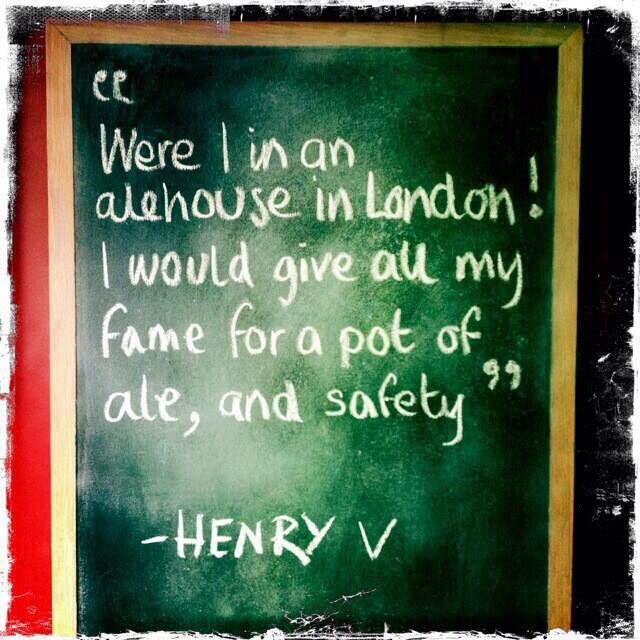 “
Were I in an
alehouse in London!
I would give all my
fame for a pot of
ale, and safety”
-HENRY V